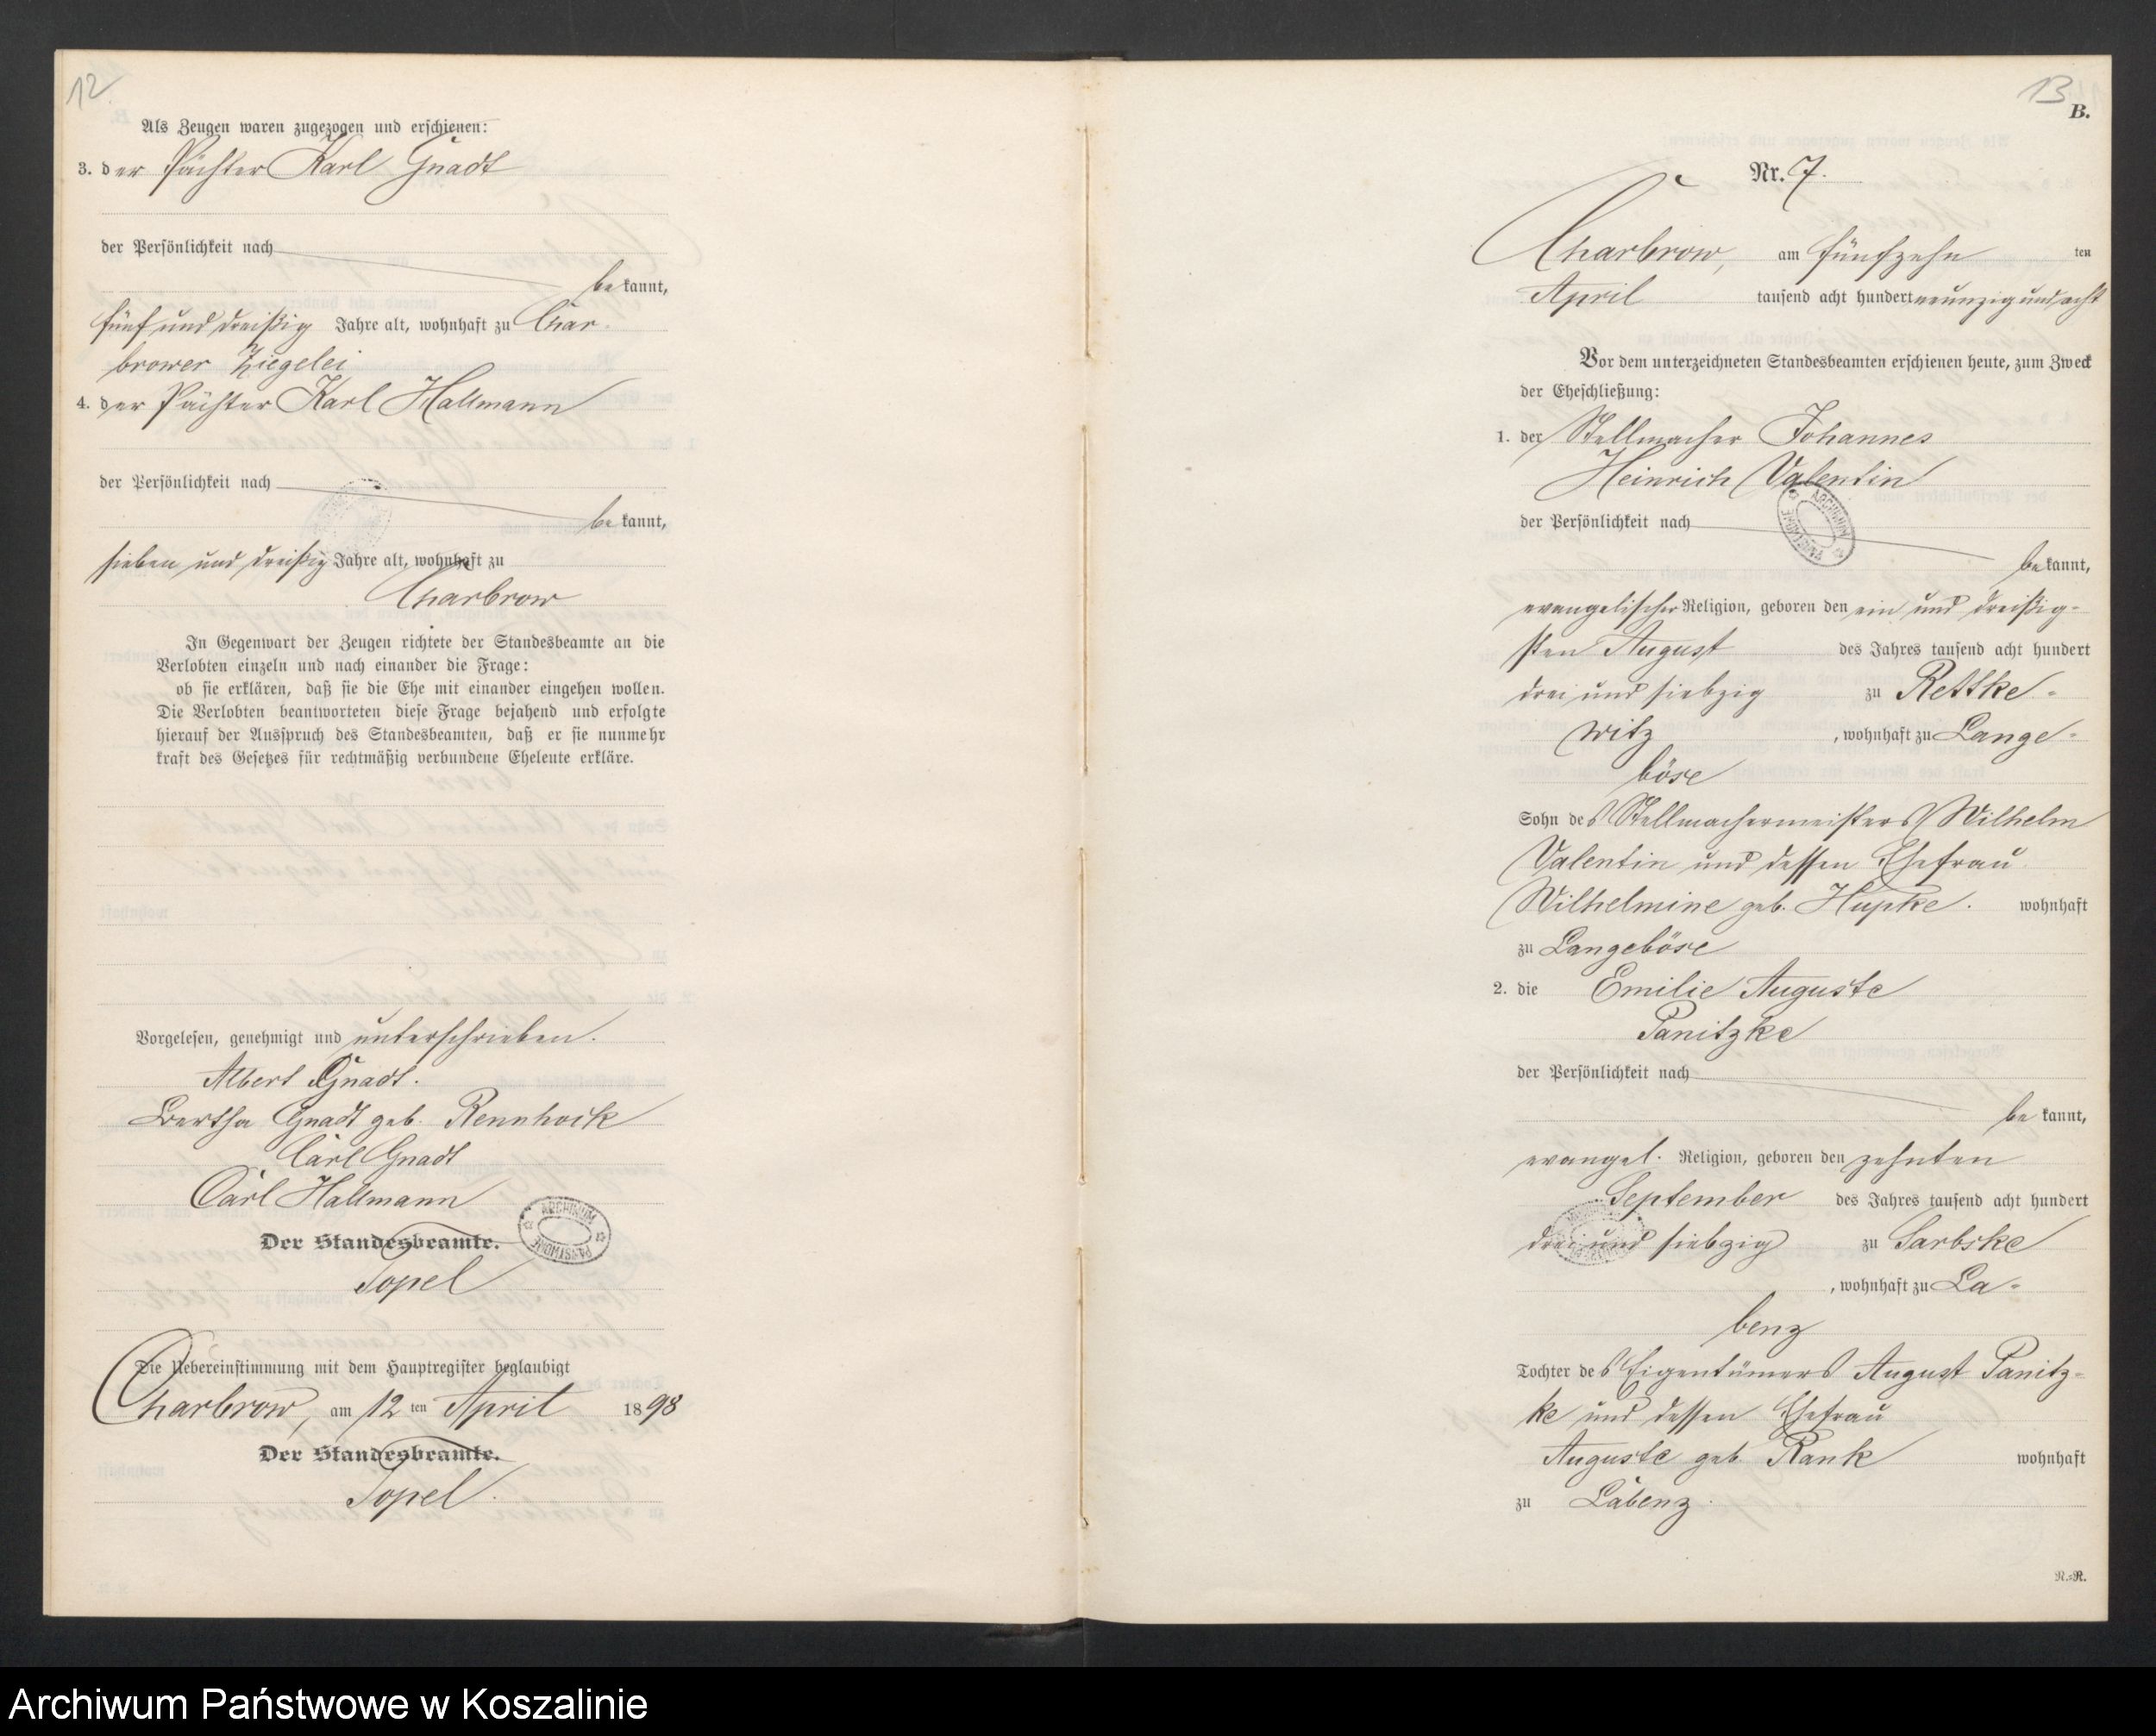 12
Als Zeugen waren zugezogen und erschienen:
3. der Pächter Karl Gnadt
der Persönlichkeit nach
be kannt,
fünf und dreißig Jahre alt, wohnhaft zu Char-
brower Ziegelei
4. der Pächter Karl Hallmann
der Persönlichkeit nach
be kannt,
sieben und dreißig Jahre alt, wohnhaft zu
Charbrow
In Gegenwart der Zeugen richtete der Standesbeamte an die
Verlobten einzeln und nach einander die Frage:
ob sie erklären, daß sie die Ehe mit einander eingehen wollen.
Die Verlobten beantworteten diese Frage bejahend und erfolgte
hierauf der Ausspruch des Standesbeamten, daß er sie nunmehr
kraft des Gesetzes für rechtmäßig verbundene Eheleute erkläre.
Vorgelesen, genehmigt und unterschrieben.
Albert Gnadt.
Bertha Gnadt geb. Rennhack
Carl Gnadt
Carl Hallmann
Der Standesbeamte.
Topel
ARCHIWUM PAŃSTWOWE
Die Uebereinstimmung mit dem Hauptregister beglaubigt
Charbrow, am 12 ten April 1898
Der Standesbeamte.
Topel.
13
B.
Nr. 7.
Charbrow, am fünfzehn ten
April tausend acht hundert neunzig und acht
Vor dem unterzeichneten Standesbeamten erschienen heute, zum Zweck
der Eheschließung:
1. der Stellmacher Johannes
Heinrich Valentin
ARCHIWUM PAŃSTWOWE
der Persönlichkeit nach
be kannt,
evangelischer Religion, geboren den ein und dreißig-
sten August des Jahres tausend acht hundert
drei und siebzig zu Rettke-
witz, wohnhaft zu Lange-
böse
Sohn des Stellmachermeisters Wilhelm
Valentin und dessen Ehefrau
Wilhelmine geb. Hupke. wohnhaft
zu Langeböse
2. die Emilie Auguste
Panitzke
der Persönlichkeit nach
be kannt,
evangel. Religion, geboren den zehnten
September des Jahres tausend acht hundert
drei und siebzig zu Sarbske
, wohnhaft zu La-
benz
Tochter des Eigentümers August Panitz-
ke und dessen Ehefrau
Auguste geb. Rank wohnhaft
zu Labenz.
R.=R.
Archiwum Państwowe w Koszalinie